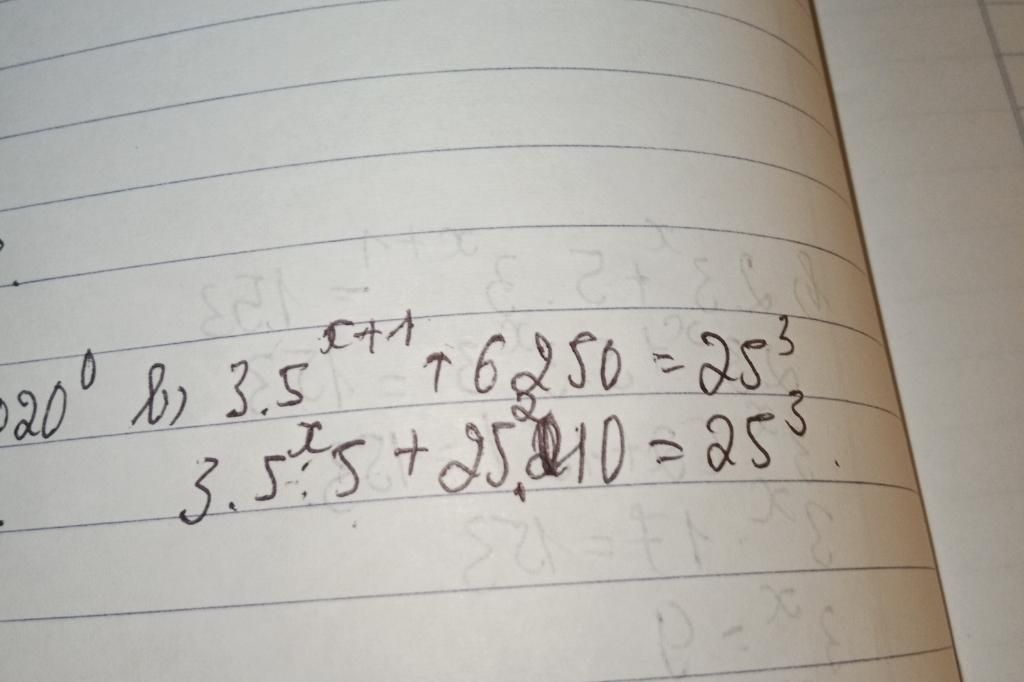 20⁰ b) 3.5ˣ⁺¹ + 6250 = 25³
3.5ˣ.5 + 25².10 = 25³